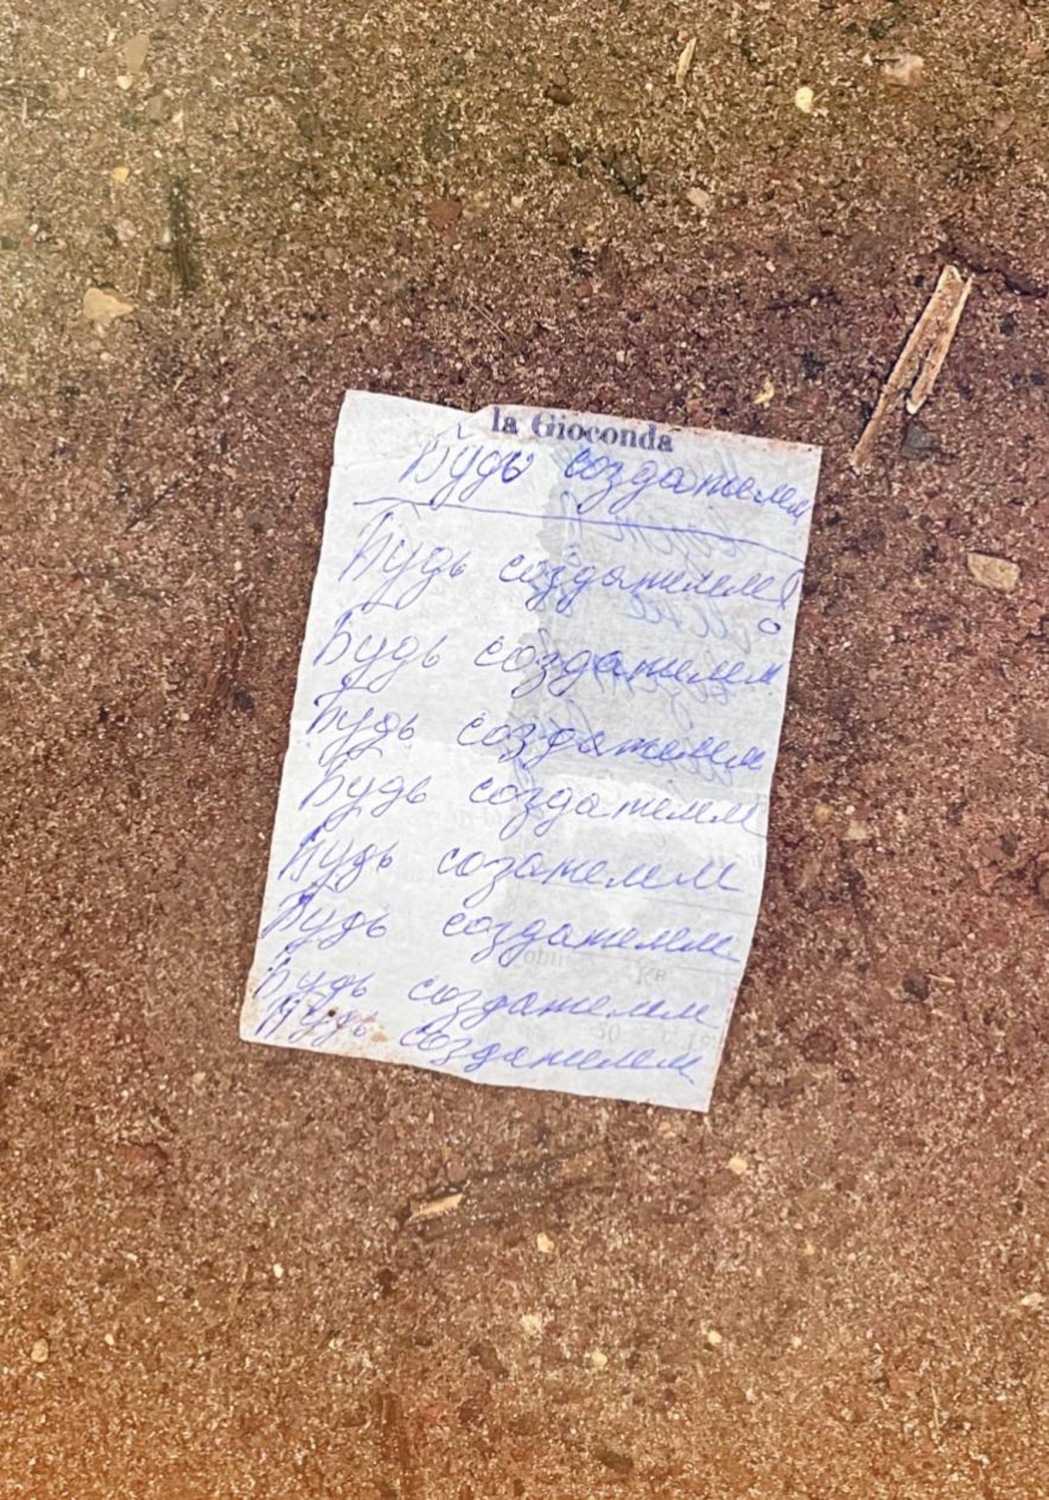 la Gioconda
Будь создателем
Будь создателем!
Будь создателем
Будь создателем
Будь создателем
Будь созателем
Будь создателем
Будь создателем
Будь создателем